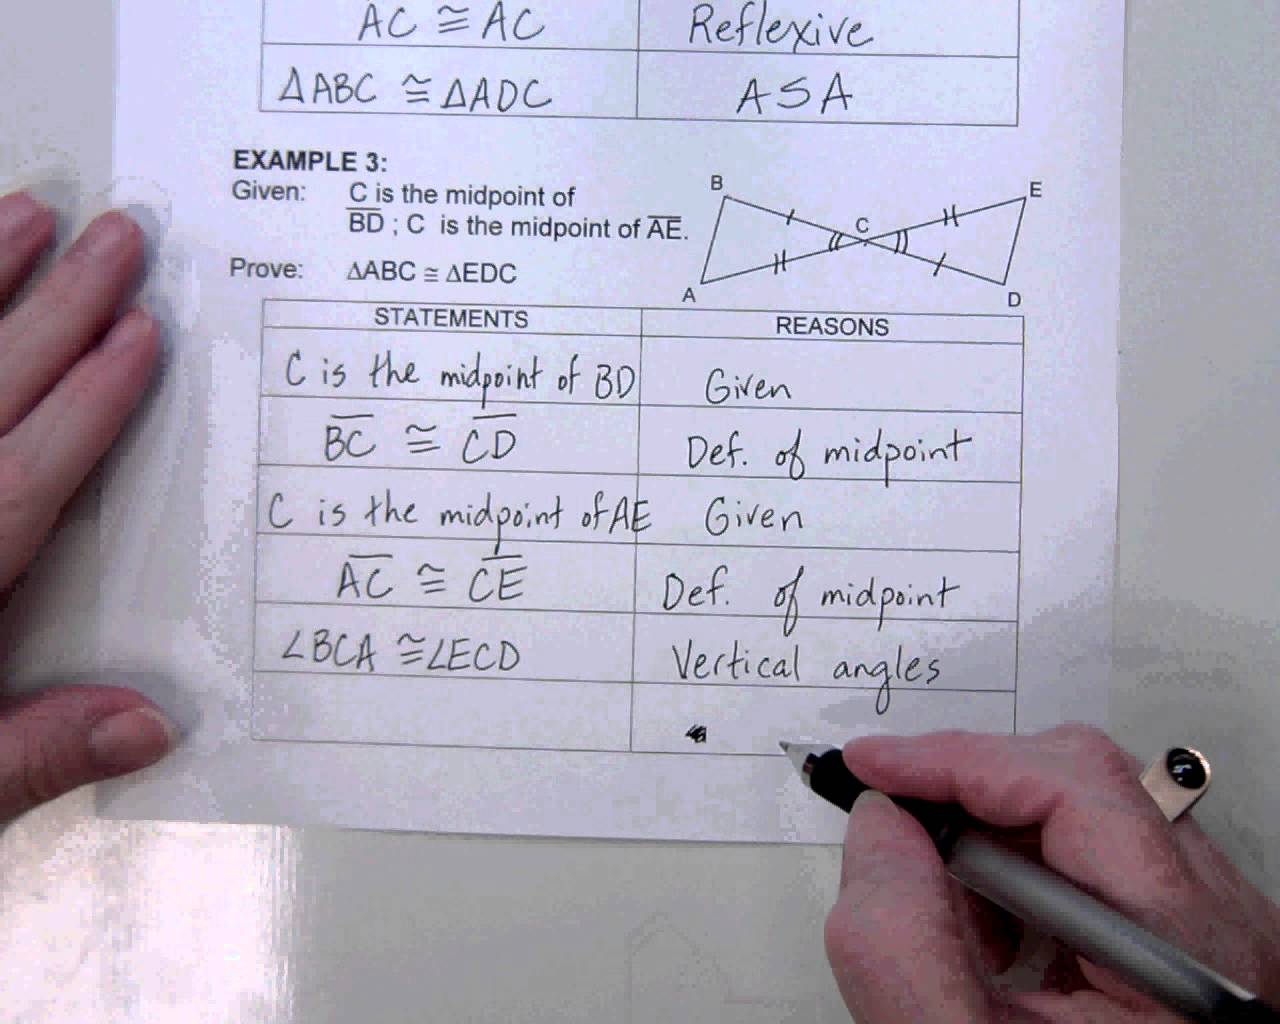 AC ≅ AC Reflexive
ΔABC ≅ ΔADC ASA
EXAMPLE 3:
Given: C is the midpoint of
BD ; C is the midpoint of AE.
Prove: ΔABC ≅ ΔEDC
B
E
C
A
D
STATEMENTS REASONS
C is the midpoint of BD Given
BC ≅ CD Def. of midpoint
C is the midpoint of AE Given
AC ≅ CE Def. of midpoint
∠BCA ≅ ∠ECD Vertical angles